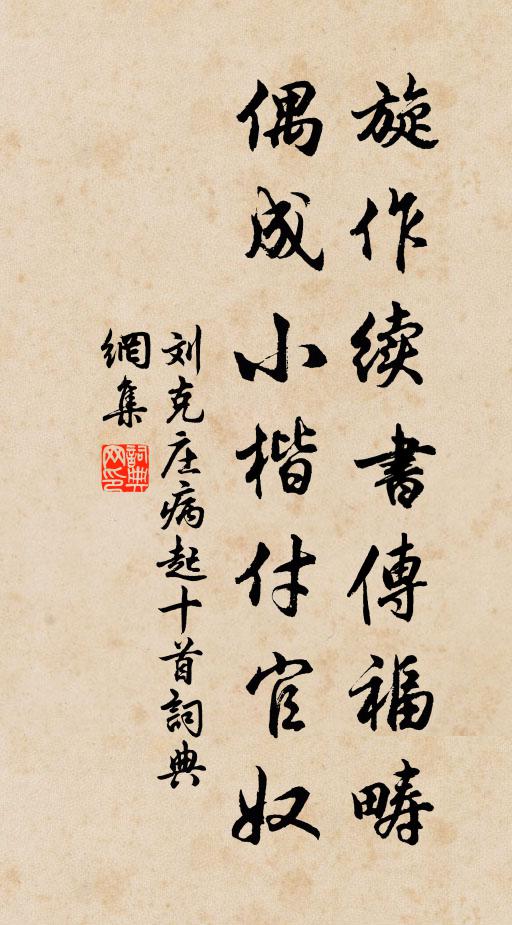 旋作续書傳福疇
偶成小楷付官奴
刘克庄病起十首詞典
網集
詞典網印